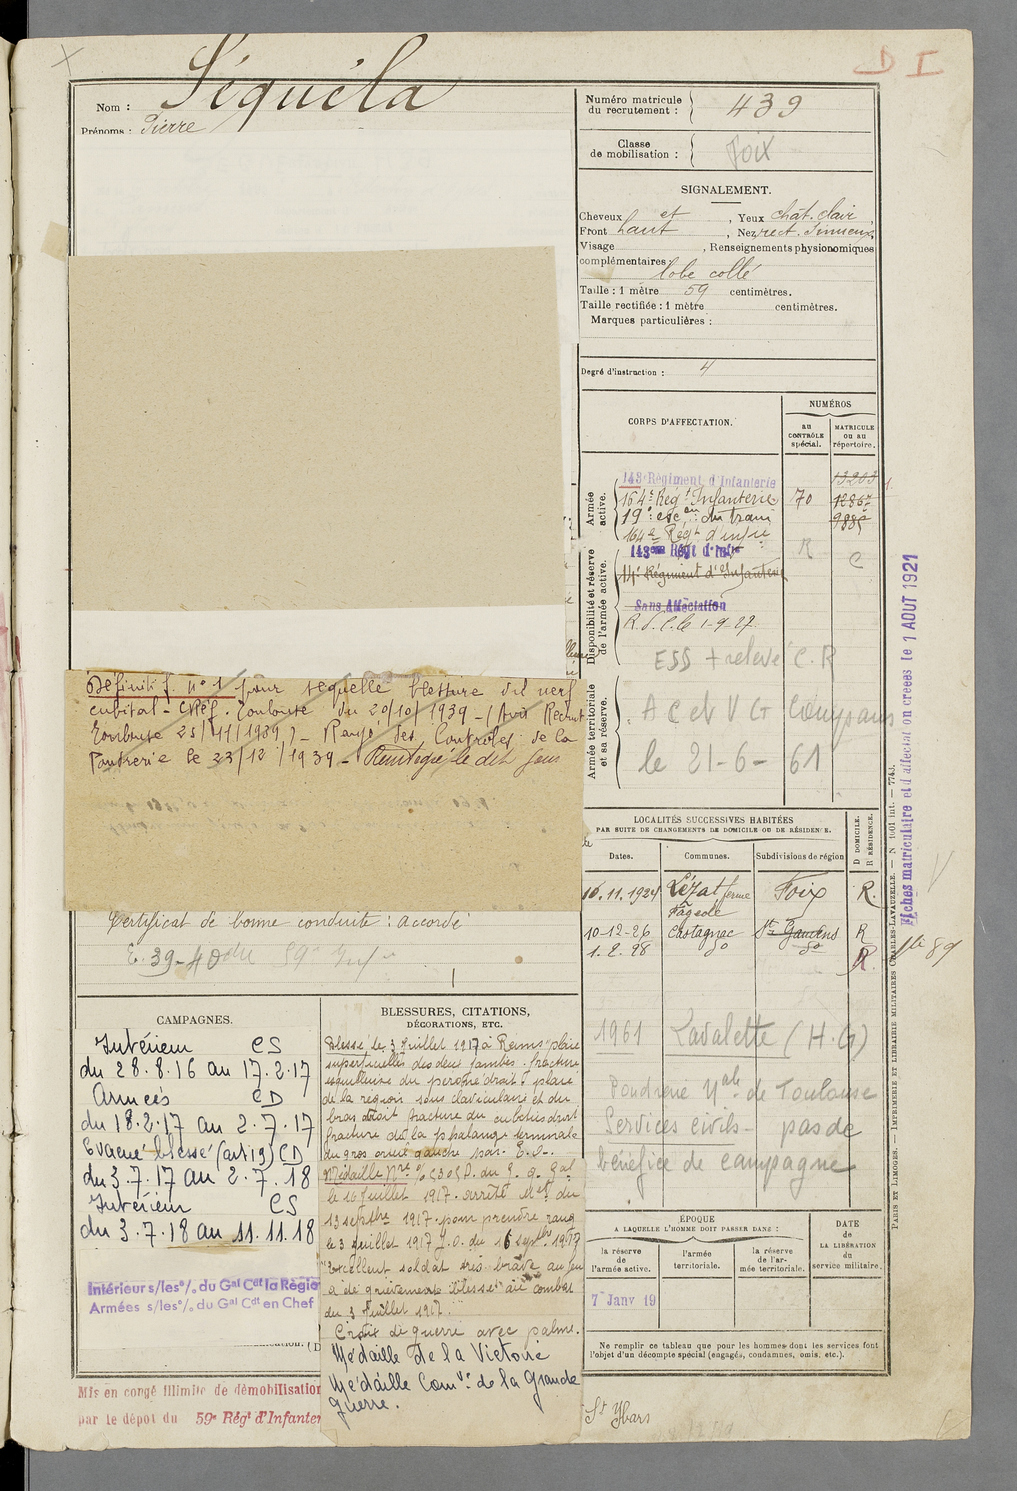 D I
Nom : Séquéla
Prénoms : Pierre
Numéro matricule
du recrutement : 439
Classe
de mobilisation : Foix
SIGNALEMENT.
Cheveux et , Yeux chât. clair ,
Front haut , Nez rect. sinueux,
Visage , Renseignements physionomiques
complémentaires
lobe collé
Taille : 1 mètre 59 centimètres.
Taille rectifiée : 1 mètre centimètres.
Marques particulières :
Degré d'instruction : 4
CORPS D'AFFECTATION.
NUMÉROS
au
CONTRÔLE
spécial.
MATRICULE
ou au
répertoire.
Armée
active.
143e Régiment d'Infanterie
164e Regt Infanterie 70
19e escon du train
164e Régt d'infie
13203
12867
9885
Disponibilité et réserve
de l'armée active.
143eme Régt d'Infie R C
14e Régiment d'Infanterie
Sans Affectation
1-9-27
ESS + relevé C.R
Armée territoriale
et sa réserve.
A C et V G Compans
le 21-6-61
Définitif. n° 1 pour séquelle blessure du nerf
cubital - CRéf. Toulouse du 20/10/1939 - (Avis Recrut
Toulouse 25/11/1939) - Rayé des Contrôles de la
Poudrerie le 23/12/1939 - Réintégré le dit jour
Certificat de bonne conduite : accordé
LOCALITÉS SUCCESSIVES HABITÉES
PAR SUITE DE CHANGEMENTS DE DOMICILE OU DE RÉSIDENCE.
Dates.
Communes.
Subdivisions de région
D DOMICILE.
R RÉSIDENCE.
10.11.1924 Lézat ferme Foix R.
Fagede
10-12-26 Castagnac St Gaudens R
1.2.28 do do R.
1961 Lavalette (H.G)
Poudrerie Nale de Toulouse
Services civils - pas de
bénéfice de campagne
CAMPAGNES.
Intérieur CS
du 28.8.16 au 17.2.17
Armées CD
du 18.2.17 au 2.7.17
Evacué blessé (art 19) CD
du 3.7.17 au 2.7.18
Intérieur CS
du 3.7.18 au 11.11.18
Intérieur s/les o/o du Gal Cdt la Région
Armées s/les o/o du Gal Cdt en Chef
BLESSURES, CITATIONS,
DÉCORATIONS, ETC.
Blessé le 3 Juillet 1917 à Reims plaie
superficielles des deux jambes. fracture
esquilleuse du peroné droit. plaie
de la région sous claviculaire et du
bras droit fracture du cubitus droit
fracture de la phalange terminale
du gros orteil gauche par E.O.
Médaille Mre du G. Q. Gal
le 10 juillet 1917. arrêté Mel du
13 septbre 1917. pour prendre rang
le 3 Juillet 1917 J.O. du 16 septbre 1917
"Excellent soldat très brave au feu
a été grièvement blessé au combat
du 3 Juillet 1917."
Croix de guerre avec palme.
Médaille de la Victoire
Médaille Comve de la Grande
guerre.
ÉPOQUE
A LAQUELLE L'HOMME DOIT PASSER DANS :
la réserve
de
l'armée active.
l'armée
territoriale.
la réserve
de l'ar-
mée territoriale.
DATE
de
LA LIBÉRATION
du
service militaire.
7 Janv 19
Ne remplir ce tableau que pour les hommes dont les services font
l'objet d'un décompte spécial (engagés, condamnés, omis, etc.).
Mis en congé illimité de démobilisation
par le dépôt du 59e Régt d'Infanter
St Ybars
Fiches matriculaire et d'affectation créées le 1 AOUT 1921
PARIS ET LIMOGES. — IMPRIMERIE ET LIBRAIRIE MILITAIRES CHARLES-LAVAUZELLE. — N 1001 int. — 7743.